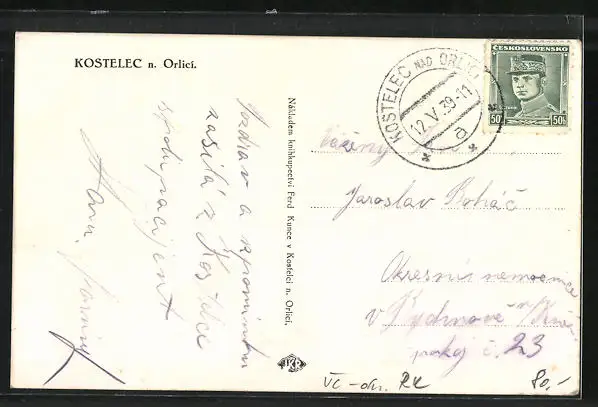 KOSTELEC n. Orlicí.
KOSTELEC NAD ORLICÍ
12.V.39-11
a
ČESKOSLOVENSKO
50h 50h
Nákladem knihkupectví Ferd Kunce v Kostelci n. Orlicí.
Pozdrav a vzpomínku
zasílá z Kostelce
Vážený pan
Jaroslav Boháč
Okresní nemocnice
v Rychnově n/Kně
pokoj č. 23
VČ-
RK
80.-